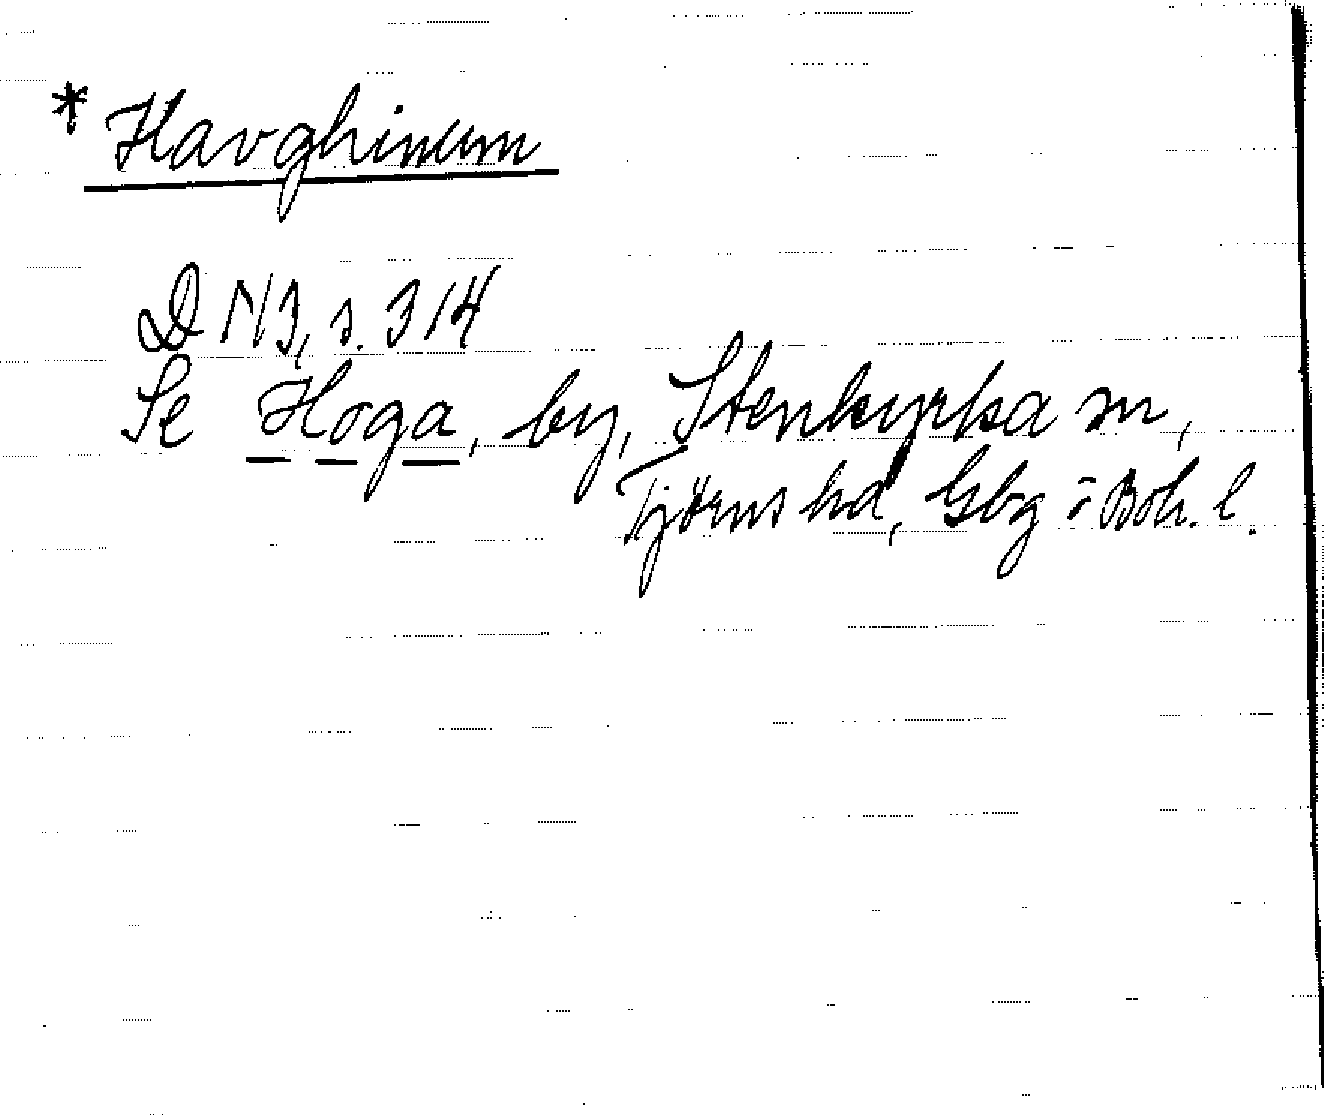 * Havghinum
DN 3, s. 314
Se Hoga, by, Stenkyrka sn,
Tjörns hd, Gbg o Boh. l.